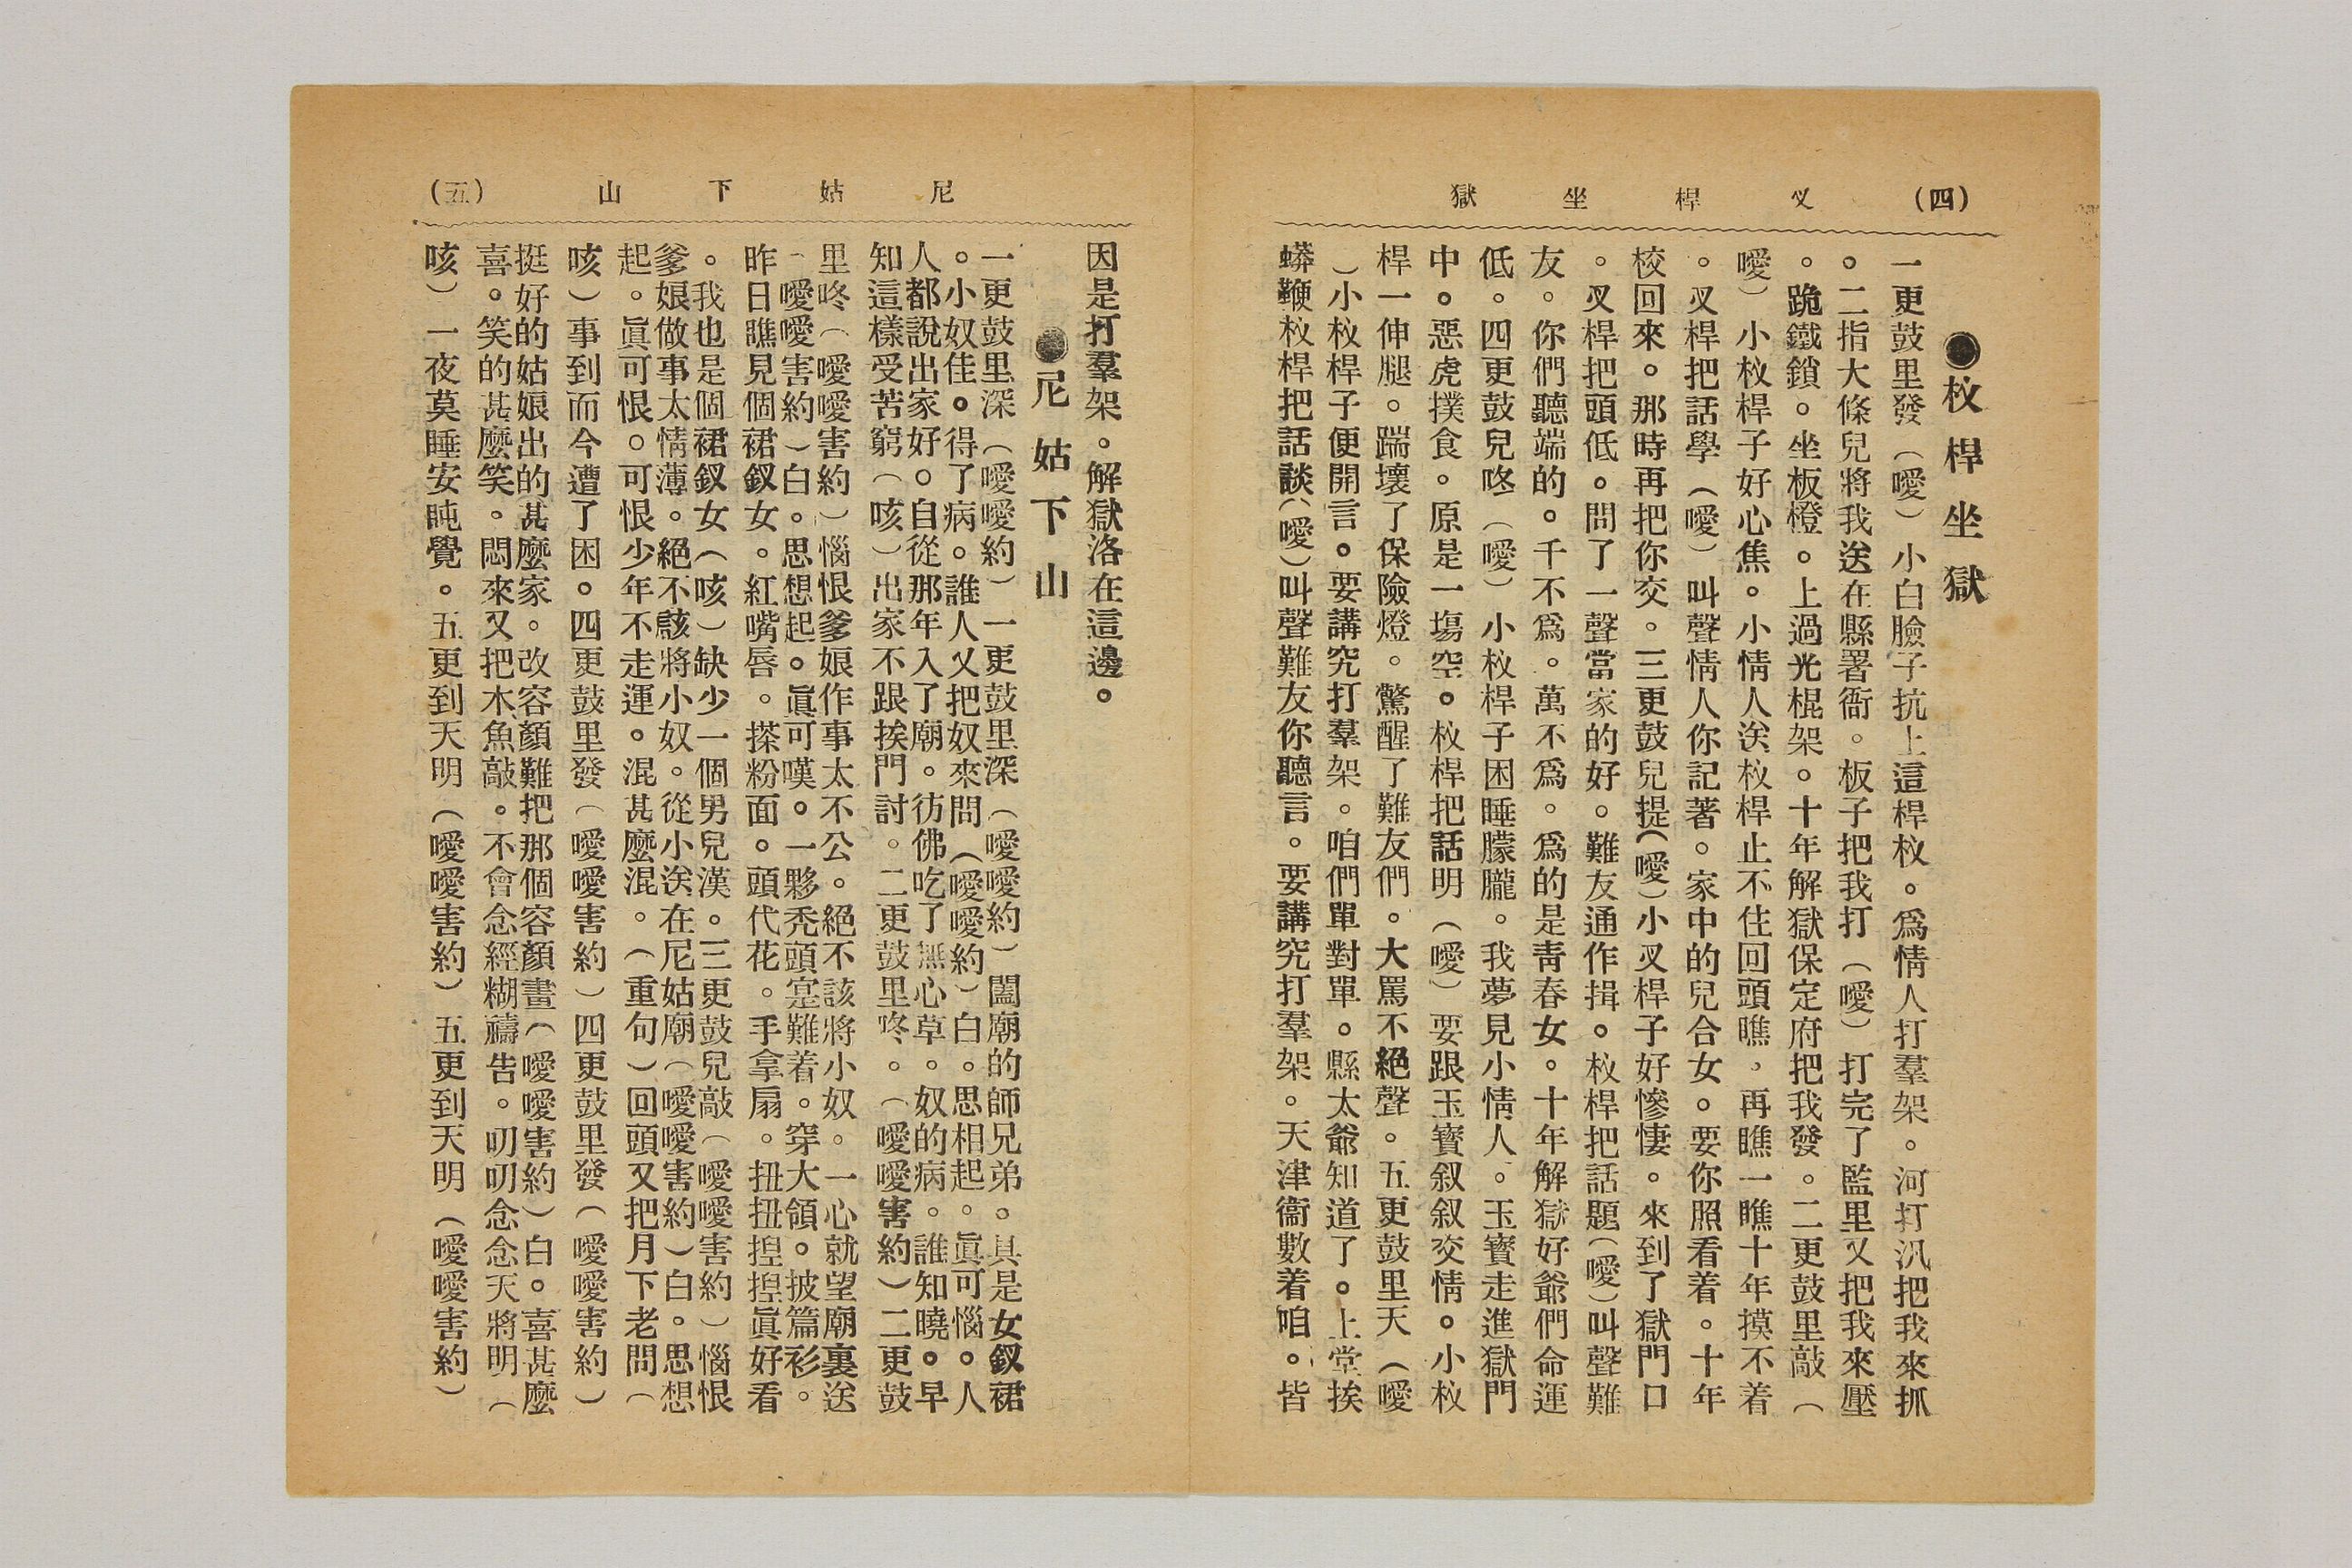 (四) 㕚桿坐獄
●杈桿坐獄
一更鼓里發（噯）小白臉子抗上這桿杈。爲情人打羣架。河打汎把我來抓
。二指大條兒將我送在縣署衙。板子把我打（噯）打完了監里又把我來壓
。跪鐵鎖。坐板橙。上過光棍架。十年解獄保定府把我發。二更鼓里敲（
噯）小杈桿子好心焦。小情人送杈桿止不住回頭瞧，再瞧一瞧十年摸不着
。㕚桿把話學（噯）叫聲情人你記著。家中的兒合女。要你照看着。十年
校回來。那時再把你交。三更鼓兒提（噯）小㕚桿子好慘悽。來到了獄門口
。㕚桿把頭低。問了一聲當家的好。難友通作揖。杈桿把話題（噯）叫聲難
友。你們聽端的。千不爲。萬不爲。爲的是靑春女。十年解獄好爺們命運
低。四更鼓兒咚（噯）小杈桿子困睡朦朧。我夢見小情人。玉寳走進獄門
中。惡虎撲食。原是一塲空。杈桿把話明（噯）要跟玉寳叙叙交情。小杈
桿一伸腿。踹壞了保險燈。驚醒了難友們。大罵不絕聲。五更鼓里天（噯
）小杈桿子便開言。要講究打羣架。咱們單對單。縣太爺知道了。上堂挨
蟒鞭杈桿把話談（噯）叫聲難友你聽言。要講究打羣架。天津衞數着咱。皆
因是打羣架。解獄洛在這邊。
尼姑下山 (五)
●尼姑下山
一更鼓里深（噯噯約）一更鼓里深（噯噯約）闔廟的師兄弟。具是女釵裙
。小奴佳。得了病。誰人乂把奴來問（噯噯約）白。思相起。眞可惱。人
人都說出家好。自從那年入了廟。彷佛吃了無心草。奴的病。誰知曉。早
知這樣受苦窮（咳）出家不跟挨門討。二更鼓里咚。（噯噯害約）二更鼓
里咚（噯噯害約）惱恨爹娘作事太不公。絕不該將小奴。一心就望廟裏送
（噯噯害約）白。思想起。眞可嘆。一夥禿頭寔難着。穿大領。披篇衫。
昨日瞧見個裙釵女。紅嘴唇。搽粉面。頭代花。手拿扇。扭扭捏捏眞好看
。我也是個裙釵女（咳）缺少一個男兒漢。三更鼓兒敲（噯噯害約）惱恨
爹娘做事太情薄。絕不該將小奴。從小送在尼姑廟（噯噯害約）白。思想
起。眞可恨。可恨少年不走運。混甚麼混。（重句）回頭又把月下老問（
咳）事到而今遭了困。四更鼓里發（噯噯害約）四更鼓里發（噯噯害約）
挺好的姑娘出的甚麼家。改容顏難把那個容顏畫（噯噯害約）白。喜甚麼
喜。笑的甚麼笑。悶來又把木魚敲。不會念經糊禱告。叨叨念念天將明（
咳）一夜莫睡安盹覺。五更到天明（噯噯害約）五更到天明（噯噯害約）